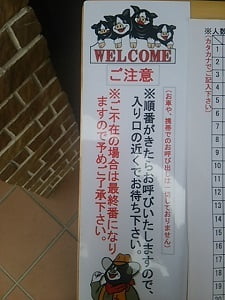 WELCOME
ご注意
※順番がきたらお呼びいたしますので、
入り口の近くでお待ち下さい。
(お車や、携帯でのお呼び出しは致しておりません)
※ご不在の場合は最終番になり
ますので予めご了承下さい。
※人数
※カタカナでご記入下さい
1
2
3
4
5
6
7
8
9
10